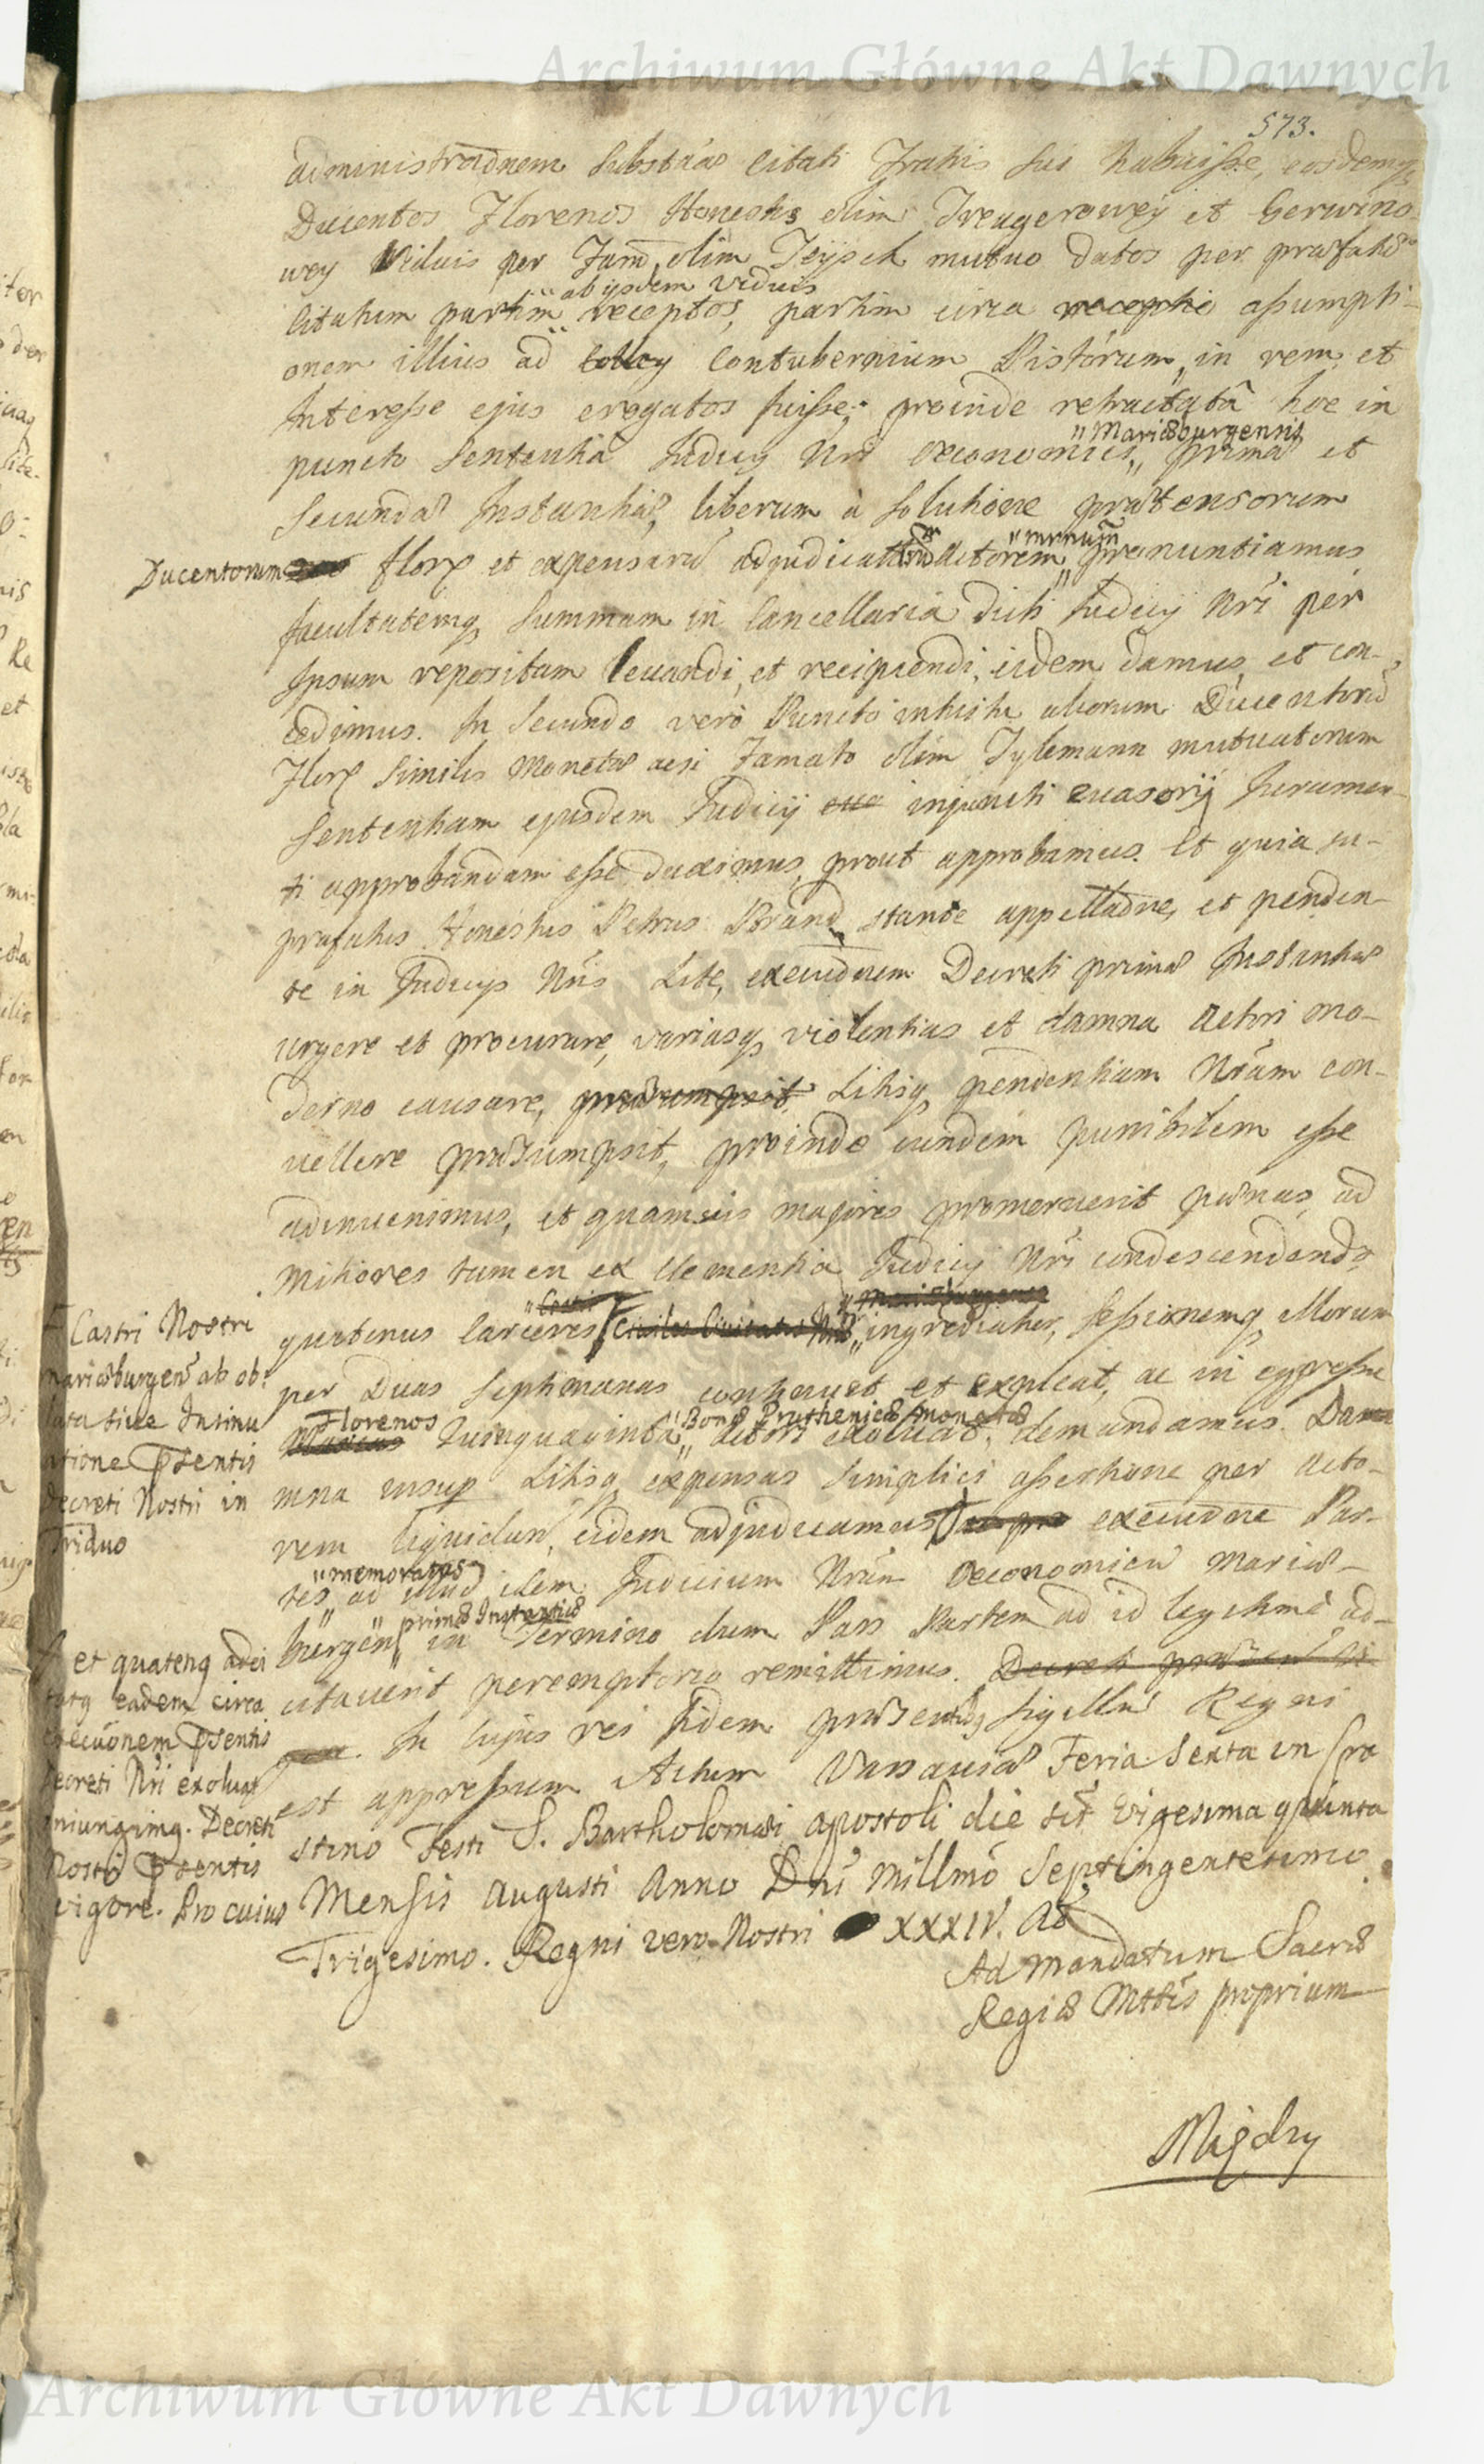 Archiwum Główne Akt Dawnych
573.
administraõnem substãæ Citati Fratris sui habuisse, eosdemq
Ducentos Florenos Honestis olim Treugerowey et Gerwino
wey Viduis per Fam̃ olim Teysch mutuo datos per præfatũ
"ab ijsdem viduis
Citatum partim receptos, partim circa receptio assumpti-
onem illius ad Contubernium Pistorum, in rem et
Interesse ejus erogatos fuisse; proinde retractatâ hoc in
"Mariæburgensis
puncto Sententiâ Judicij Nri Oeconomici, primæ et
Secundæ Instantiæ, liberum à solutione prætensorum
"mrnum̃
Ducentorum florʒ et expensarũ adjudicatarũ Actorem pronuntiamus
facultatemq summam in Cancellaria dicti Judicij Nri per
Ipsum repositam levandi, et recipiendi, eidem damus, et con-
cedimus. In Secundo verò Puncto intuitu aliorum Ducentorũ
Florʒ similis Monetæ aesi Famato olim Tylemann mutuatorum
Sententiam ejusdem Judicij injuncti evasorij Juramen-
ti approbandam esse duximus, prout approbamus. Et quia su-
præfatus Honestus Petrus Brand stante appellaõne, et penden-
te in Judicijs Nris Lite, execuõnem Decreti primæ Instantiæ
urgere et procurare, variasq violentias et damna Actori mo-
derno causare, præsumpsit, Litisq pendentiam Nrãm con-
vellere præsumpsit, proinde eundem punibilem esse
adinvenimus, et quamvis majores promeruerit pœnas, ad
mitiores tamen ex Clementia Judicij Nri condescendendo,
"Castri "Mariæburgensis
quatenus Carceres Civiles Civitatis Nræ ingrediatur, sessionemq Illorum
per Duas Septimanas continuet et expleat, ac in egressu
Florenos "Bonæ Pruthenicæ monetæ
Quinquaginta Actori exolvat, demandamus. Dam
mna insup Litisq expensas simplici assertione per Acto-
rem liquidan̂, eidem adjudicamus execuõne Par-
"memoratas
tes ad illud idem Judicium Nrũm Oeconomicũ Mariæ-
primæ Instantiæ
burgen̂ in Termino dum Pars Partem ad id legitimè ad-
citaverit peremptorio remittimus. Decreti præsentis
In cujus rei fidem præsentibq sigillũ Regni
est appressum Actum Varsaviæ Feria Sexta in Cra
stino Festi S. Bartholomæi Apostoli die sct̃ Vigesima quinta
Mensis Augusti Anno Dñi Millmõ Septingentesimo
Trigesimo. Regni vero Nostri XXXIV. Aõ
Ad Mandatum Sacræ
Regiæ Mttis proprium
Castri Nostri
Mariæburgen̂ ab ob-
lata sive Insinu
atione Psentis
Decreti Nostri in
Triduo
et quatenq adci
tatq eadem circa
execuõnem Psentis
Decreti Nri exolvat
iniungimq. Decreti
Nostri Psentis
vigore. Pro cuius
Archiwum Główne Akt Dawnych